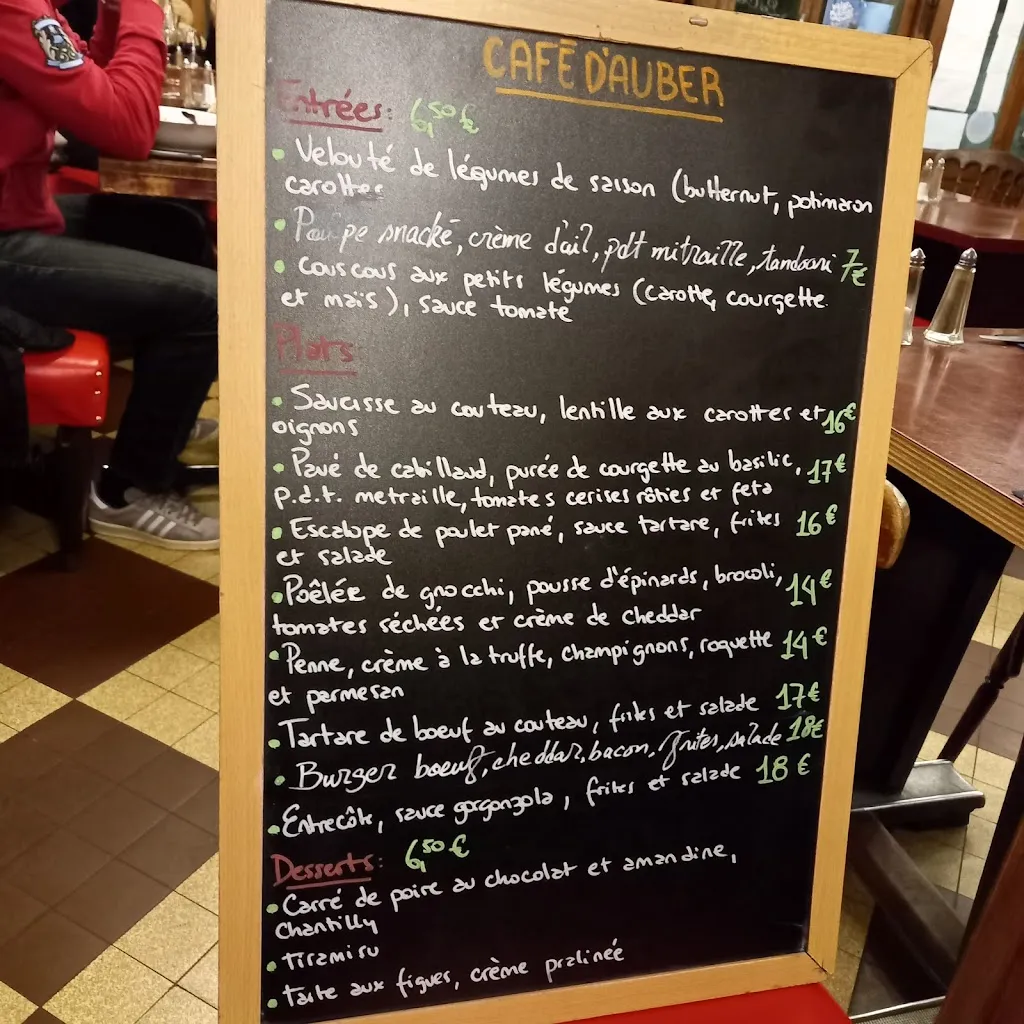 CAFÉ D'AUBER
Entrées: 6,50 €
• Velouté de légumes de saison (butternut, potimaron
carottes
• Poulpe snacké, crème d'ail, pdt mitraille, tandoori 7€
• couscous aux petits légumes (carotte, courgette
et maïs), sauce tomate
Plats
• Saucisse au couteau, lentille aux carottes et 16€
oignons
• Pavé de cabillaud, purée de courgette au basilic, 17€
p.d.t. metraille, tomates cerises rôties et feta
• Escalope de poulet pané, sauce tartare, frites 16€
et salade
• Poêlée de gnocchi, pousse d'épinards, brocoli, 14€
tomates séchées et crème de cheddar
• Penne, crème à la truffe, champignons, roquette 14€
et parmesan
• Tartare de boeuf au couteau, frites et salade 17€
• Burger boeuf, cheddar, bacon, frites, salade 18€
• Entrecôte, sauce gorgonzola, frites et salade 18€
Desserts: 6,50 €
• Carré de poire au chocolat et amandine,
chantilly
• tiramisu
• tarte aux figues, crème pralinée